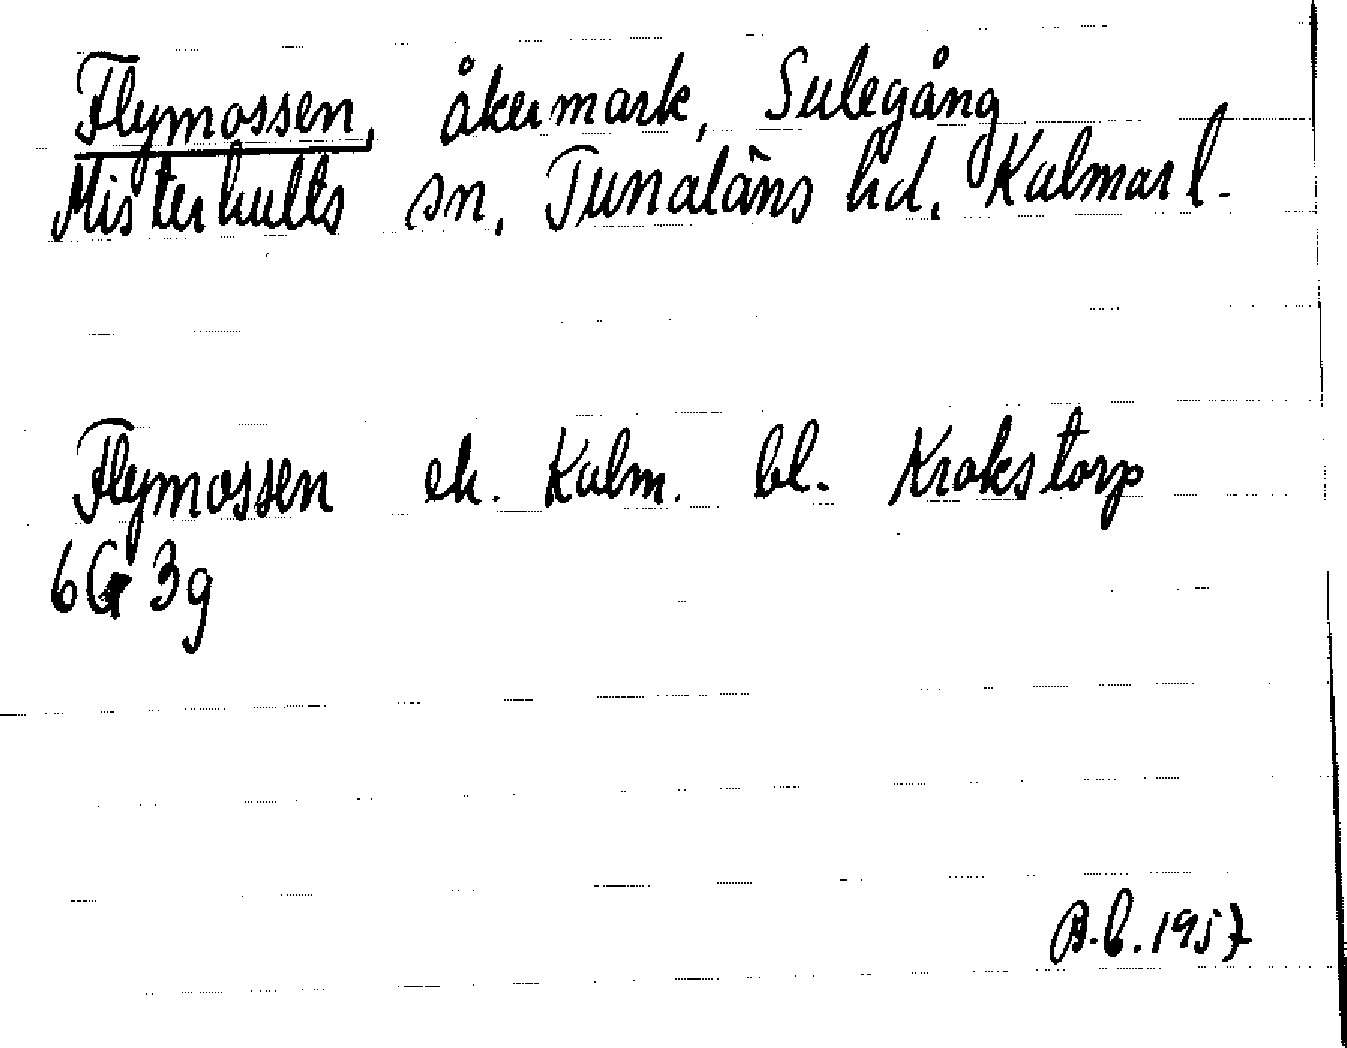 Flymossen, åkermark, Sulegång
Misterhults sn, Tunaläns hd, Kalmar l.
Flymossen ek. Kalm. bl. Krokstorp
6G 3g
B.L. 1957